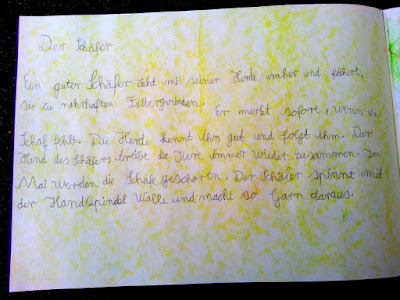 Der Schäfer
Ein guter Schäfer zieht mit seiner Herde umher und führt
sie zu nahrhaften Futtergründen. Er merkt sofort, wenn ein
Schaf fehlt. Die Herde kennt ihn gut und folgt ihm. Der
Hund des Schäfers treibt die Tiere immer wieder zusammen. Im
Mai werden die Schafe geschoren. Der Schäfer spinnt mit
der Handspindel Wolle und macht so Garn daraus.